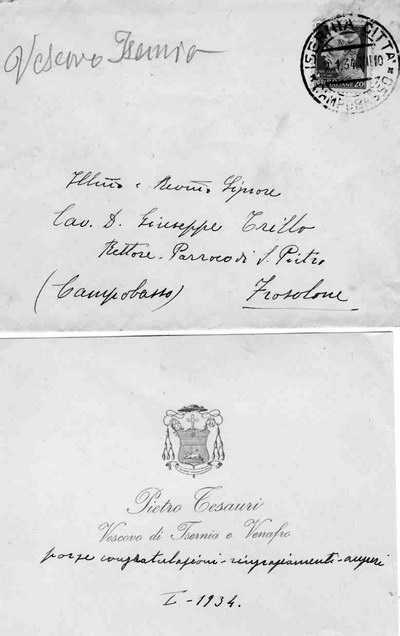 Vescovo Isernia
ISERNIA CITTÀ
1.34 XII.10
(CAMPOBASSO)
20
Illmo e Revmo Signore
Cav. D. Giuseppe Trillo
Rettore-Parroco di S. Pietro
(Campobasso) Frosolone
Pietro Tesauri
Vescovo di Isernia e Venafro
porge congratulazioni-ringraziamenti-auguri
I-1934.